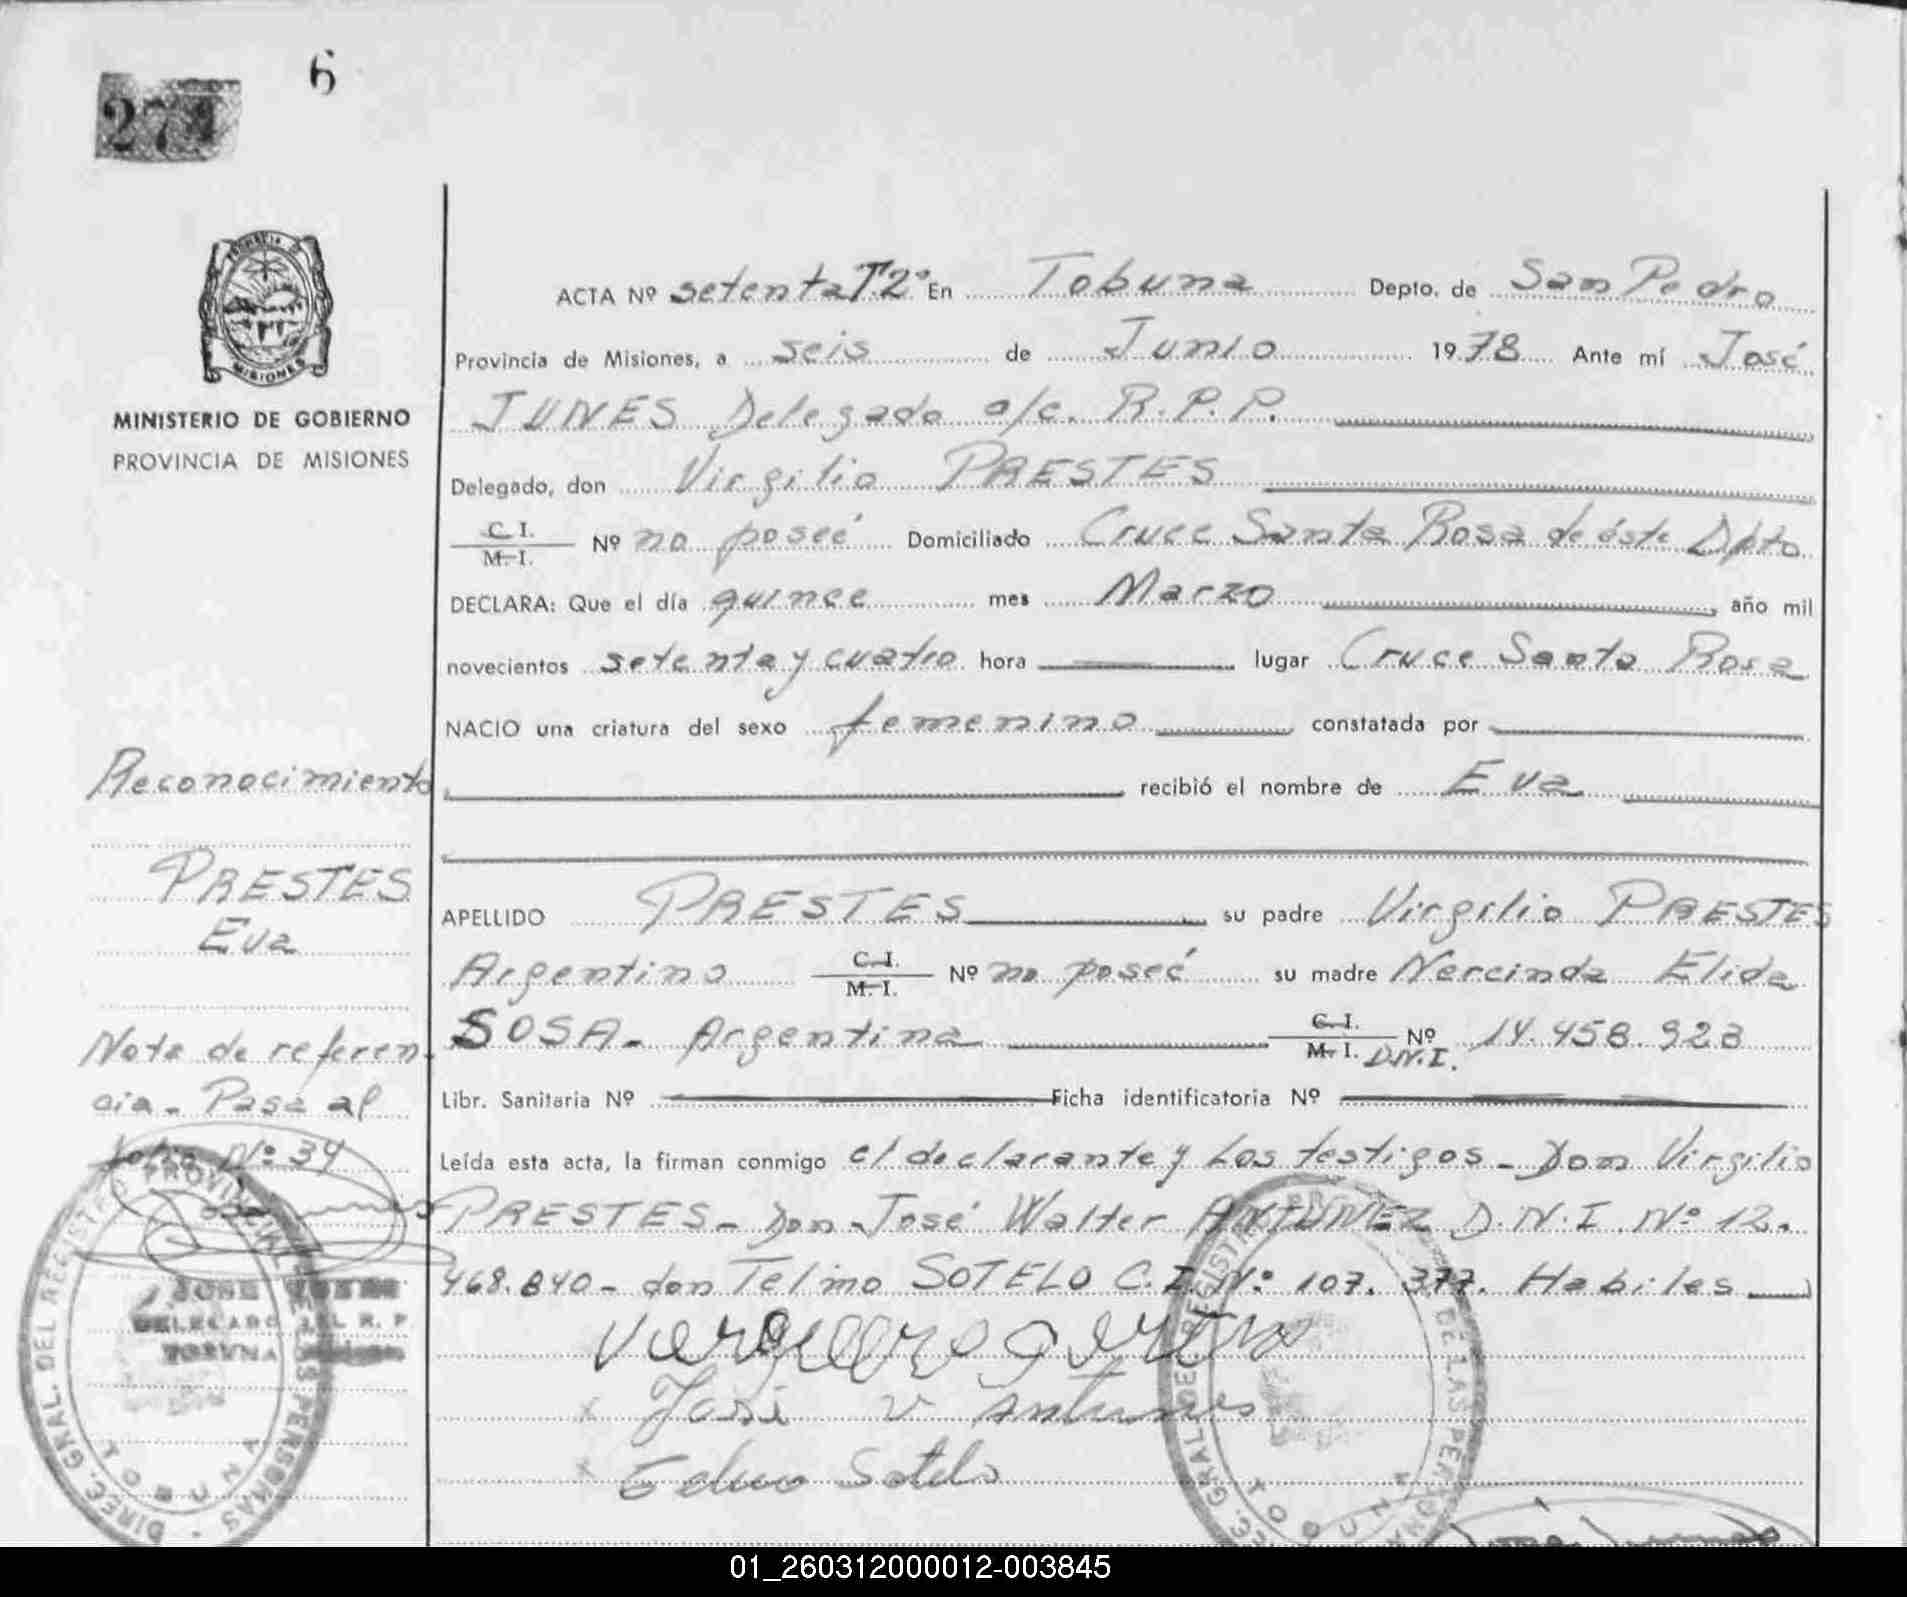 6
271
MISIONES
MINISTERIO DE GOBIERNO
PROVINCIA DE MISIONES
ACTA Nº setenta T.2º En Tobuna Depto. de San Pedro
Provincia de Misiones, a seis de Junio 1978 Ante mí José
JUNES Delegado a/c. R.P.P.
Delegado, don Virgilio PRESTES
C.I.
M.I. Nº no poseé Domiciliado Cruce Santa Rosa de éste Dpto
DECLARA: Que el día quince mes Marzo, año mil
novecientos setenta y cuatro hora lugar Cruce Santa Rosa
NACIO una criatura del sexo femenino constatada por
recibió el nombre de Eva
APELLIDO PRESTES su padre Virgilio PRESTES
Argentino C.I.
M.I. Nº no poseé su madre Nercinda Elida
SOSA - Argentina C.I.
M.I. D.N.I. Nº 14.458.923
Libr. Sanitaria Nº Ficha identificatoria Nº
Leída esta acta, la firman conmigo el declarante y Los testigos - Don Virgilio
PRESTES - Don José Walter ANTUNEZ D.N.I. Nº 12.
468.840 - don Telmo SOTELO C.I. Nº 107.377. Habiles
José W Antunes
Telmo Sotelo
Reconocimiento
PRESTES
Eva
Nota de referen-
cia - Pasa al
folio Nº 34
JOSE JUNES
DELEGADO DEL R. P.
TOBUNA
DIREC. GRAL. DEL REGISTRO PROVINCIAL DE LAS PERSONAS - TOBUNA
DIREC. GRAL. DEL REGISTRO PROVINCIAL DE LAS PERSONAS TOBUNA
01_260312000012-003845